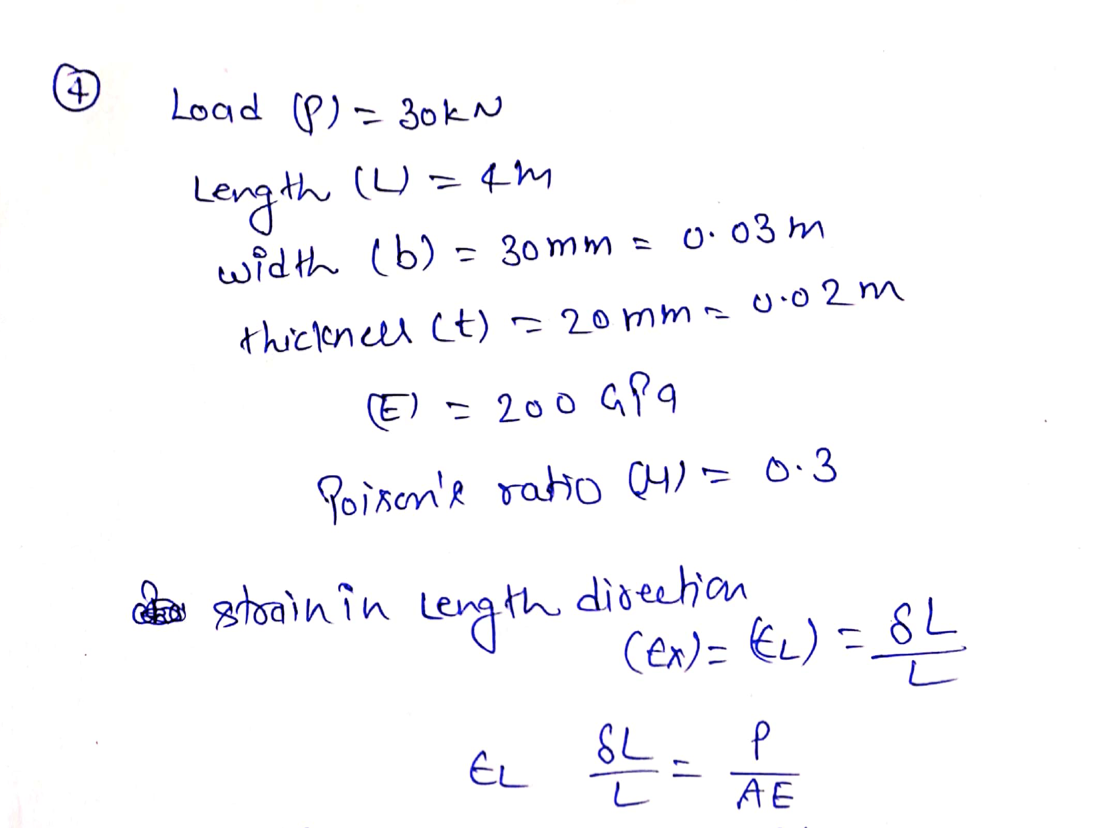 ④
Load (P) = 30kN
Length (L) = 4m
width (b) = 30mm = 0.03m
thickness (t) = 20mm = 0.02m
(E) = 200 GPa
Poison's ratio (μ) = 0.3
strain in Length direction
(εx) = (εL) = δL/L
εL δL/L = P/AE